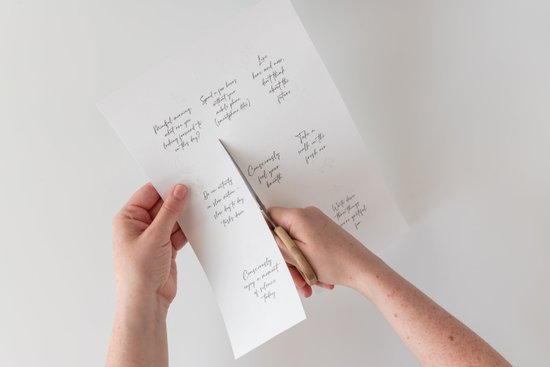 Mindful morning:
what are you
looking forward to
on this day?
Spend a few hours
without your
mobile phone
(smartphone detox)
Live
here and now,
don't think
about the
future
Do an activity
in slow motion -
slow day to day
tasks down
Consciously
feel your
breath
Take a
walk in the
fresh air
Consciously
enjoy a moment
of silence
today
Write down
three things
you're grateful
for